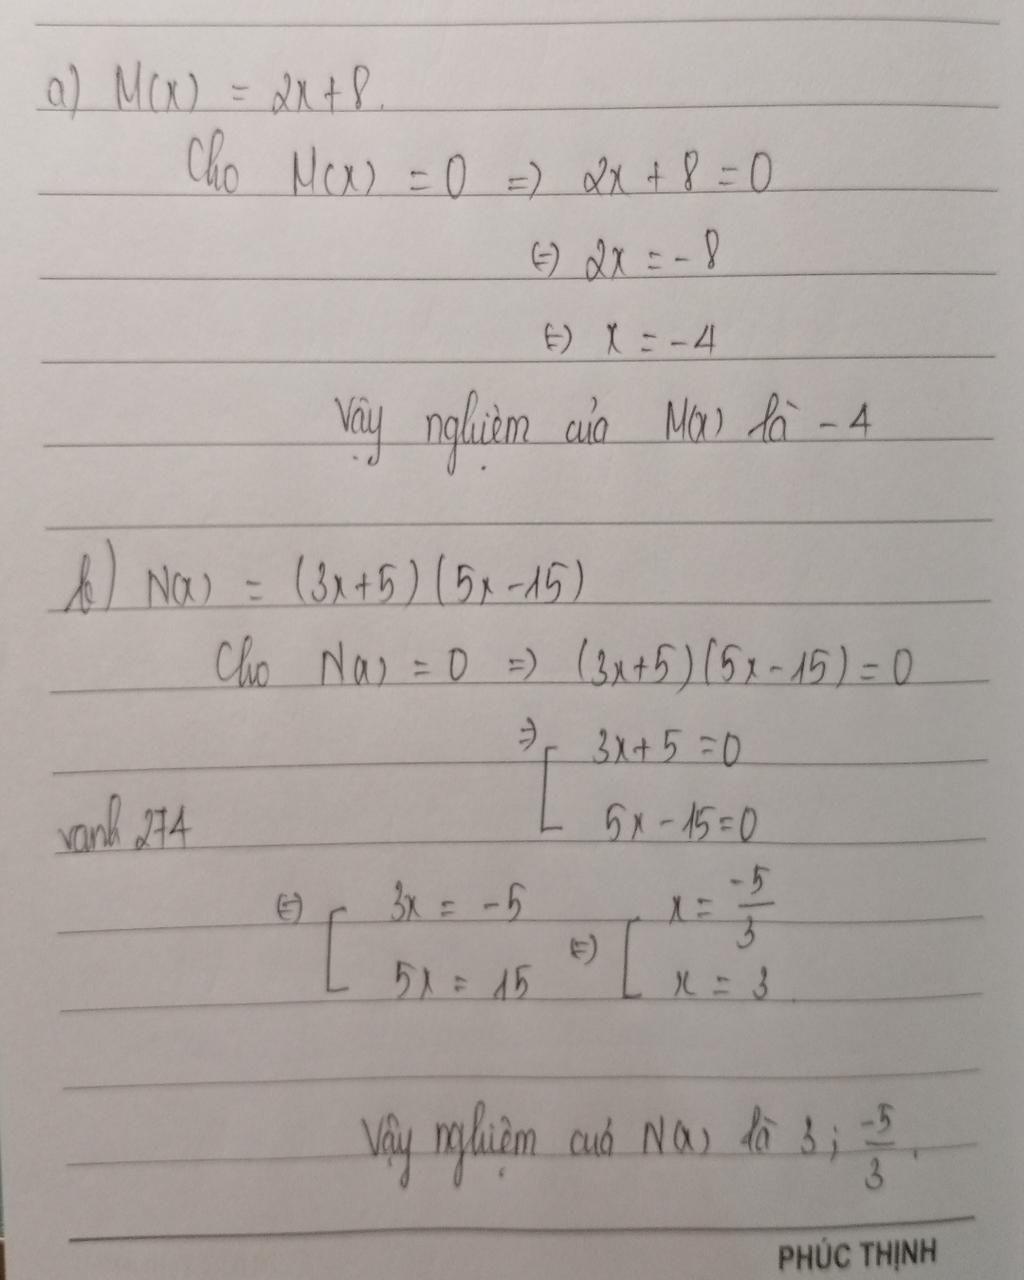 a) M(x) = 2x+8.
Cho M(x) = 0 => 2x + 8 = 0
(=) 2x = - 8
(=) x = - 4
Vậy nghiệm của M(x) là - 4
b) N(x) = (3x+5)(5x-15)
Cho N(x) = 0 => (3x+5)(5x-15) = 0
=> [ 3x+5 = 0
5x - 15 = 0
vanh 274
(=) [ 3x = -5 (=) [ x = -5/3
5x = 15 x = 3
Vậy nghiệm của N(x) là 3 ; -5/3.
PHÚC THỊNH